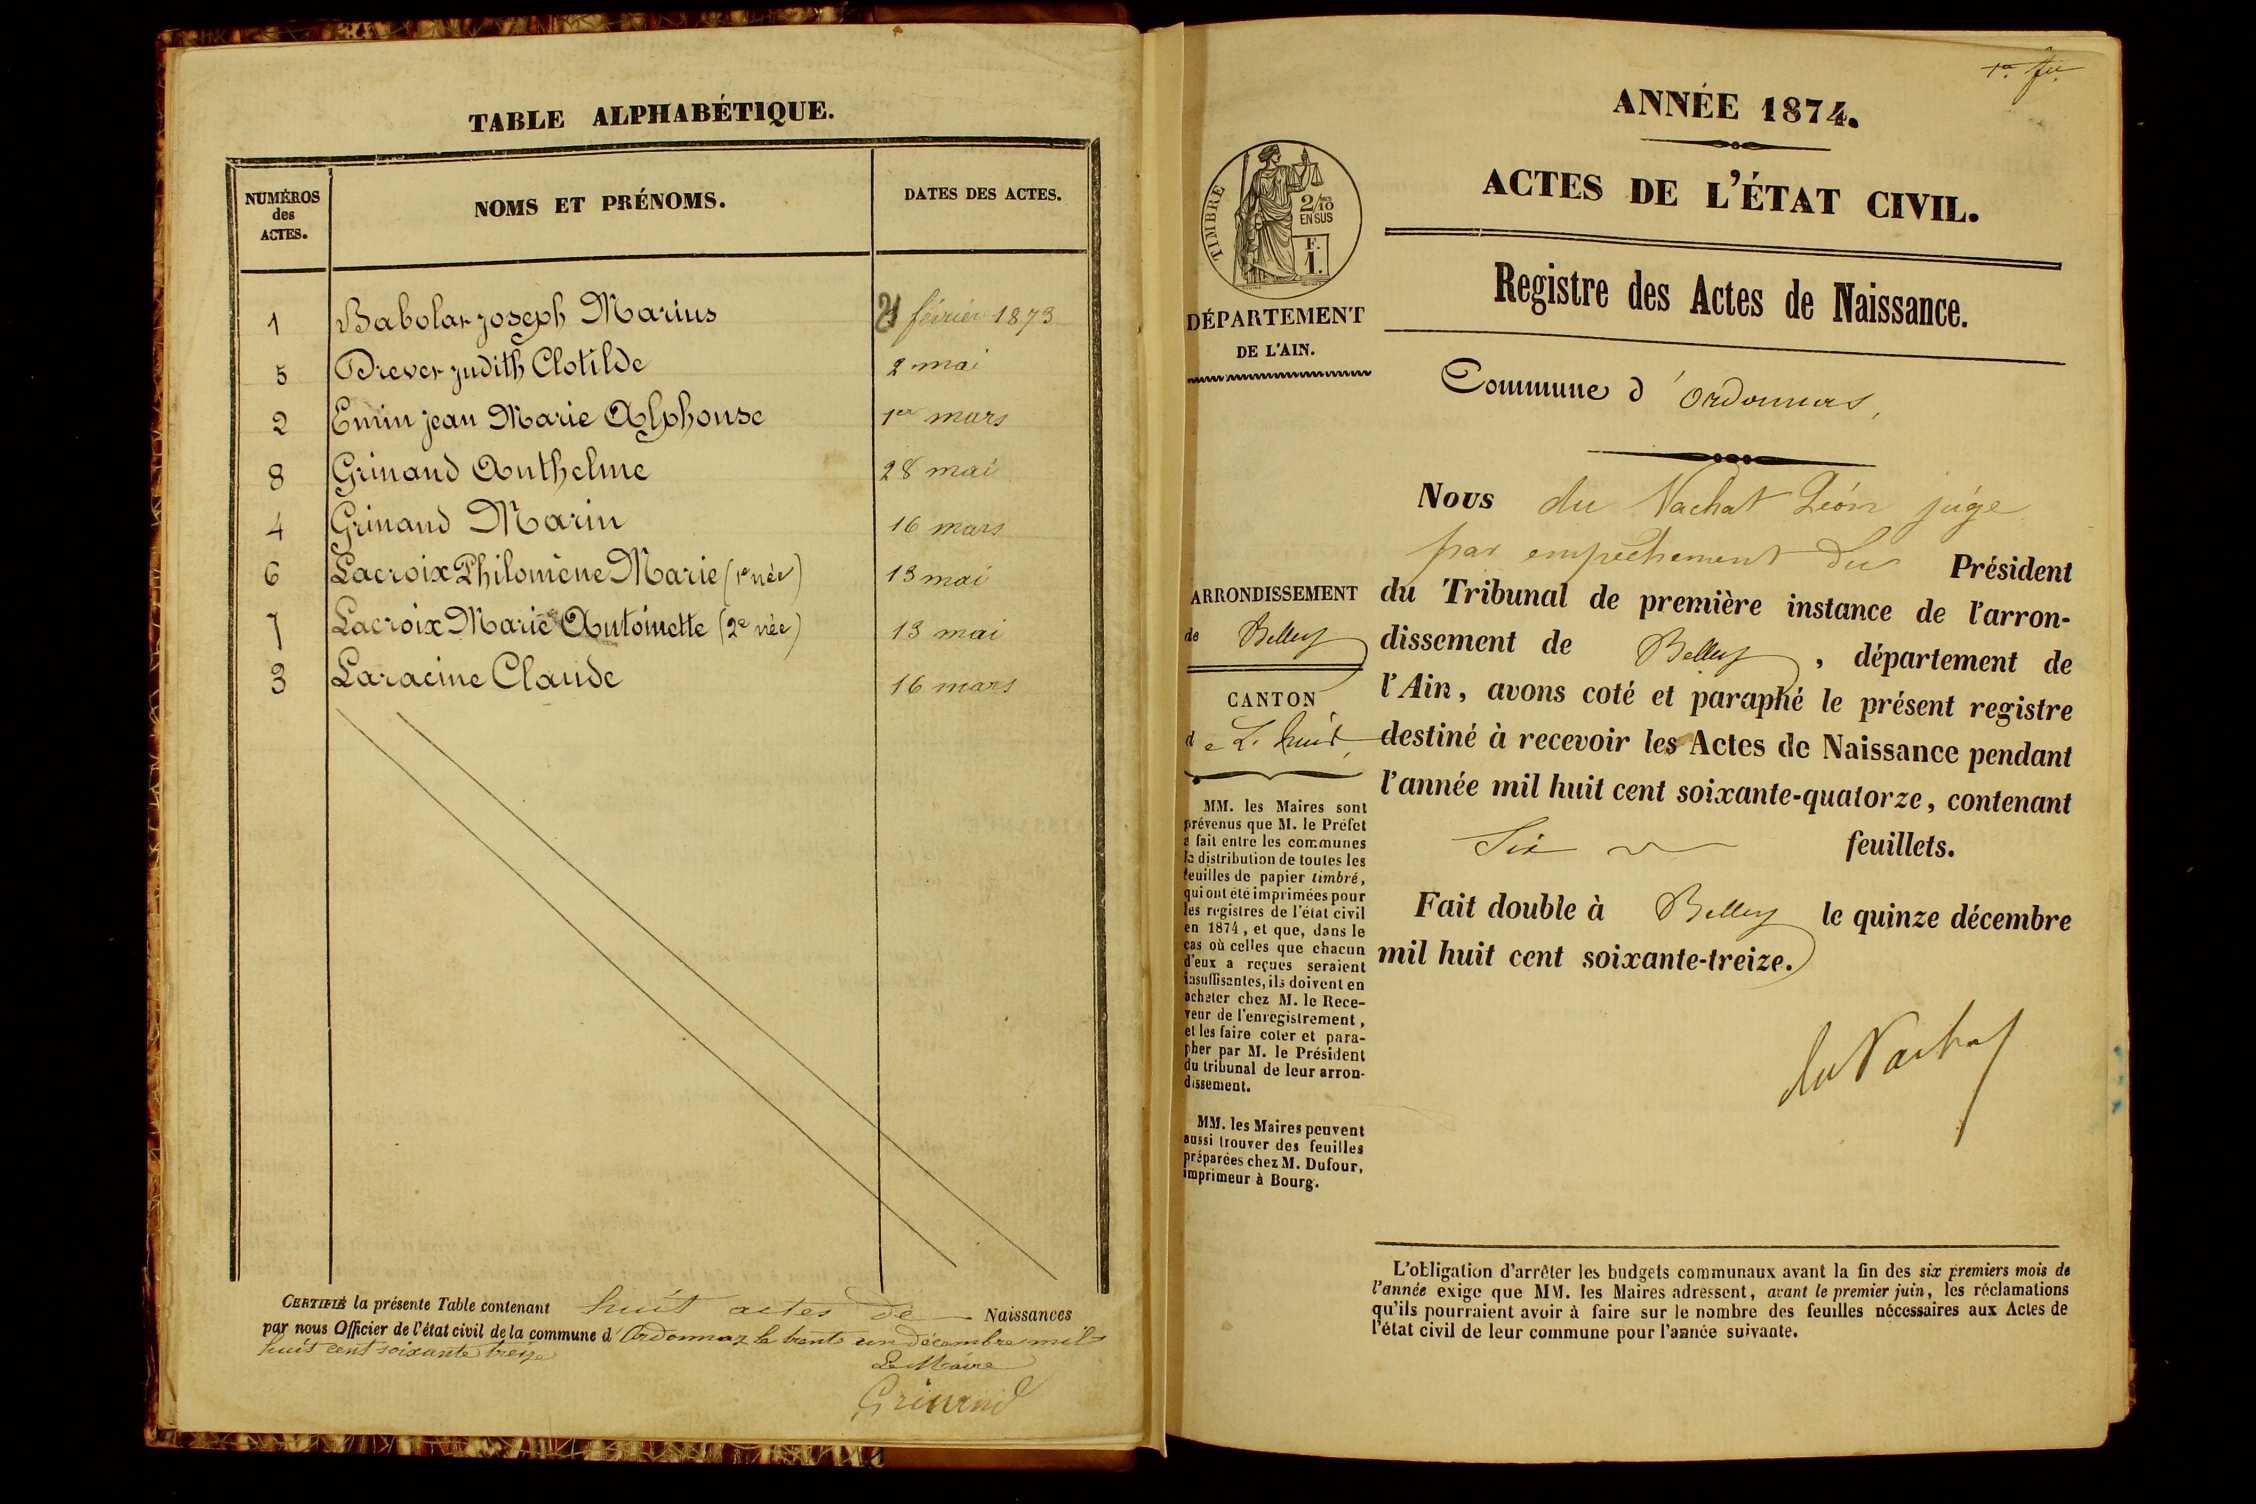 TABLE ALPHABÉTIQUE.
NUMÉROS des ACTES. NOMS ET PRÉNOMS. DATES DES ACTES.
1 Babolat joseph Marius février 1873
5 Drevet judith Clotilde 2 mai
2 Emin jean Marie Alphonse 1er mars
8 Grinand Anthelme 28 mai
4 Grinand Marin 16 mars
6 Lacroix Philomène Marie (1e née) 13 mai
7 Lacroix Marie Antoinette (2e née) 13 mai
3 Laracine Claude 16 mars
CERTIFIÉ la présente Table contenant huit actes de Naissances
par nous Officier de l'état civil de la commune d'Ordonnaz le trente un décembre mil
huit cent soixante treize
Le Maire
Grinand
ANNÉE 1874.
ACTES DE L'ÉTAT CIVIL.
Registre des Actes de Naissance.
TIMBRE
2/10
EN SUS
F.
1.
DÉPARTEMENT
DE L'AIN.
ARRONDISSEMENT
de Belley
CANTON
de L'huis
MM. les Maires sont
prévenus que M. le Préfet
a fait entre les communes
la distribution de toutes les
feuilles de papier timbré,
qui ont été imprimées pour
les registres de l'état civil
en 1874, et que, dans le
cas où celles que chacun
d'eux a reçues seraient
insuffisantes, ils doivent en
acheter chez M. le Rece-
veur de l'enregistrement,
et les faire coter et para-
pher par M. le Président
du tribunal de leur arron-
dissement.
MM. les Maires peuvent
aussi trouver des feuilles
préparées chez M. Dufour,
imprimeur à Bourg.
Commune d'Ordonnas,
Nous du Vachat Léon juge
par empêchement du Président
du Tribunal de première instance de l'arron-
dissement de Belley, département de
l'Ain, avons coté et paraphé le présent registre
destiné à recevoir les Actes de Naissance pendant
l'année mil huit cent soixante-quatorze, contenant
Six feuillets.
Fait double à Belley le quinze décembre
mil huit cent soixante-treize.
du Vachat
L'obligation d'arrêter les budgets communaux avant la fin des six premiers mois de
l'année exige que MM. les Maires adressent, avant le premier juin, les réclamations
qu'ils pourraient avoir à faire sur le nombre des feuilles nécessaires aux Actes de
l'état civil de leur commune pour l'année suivante.